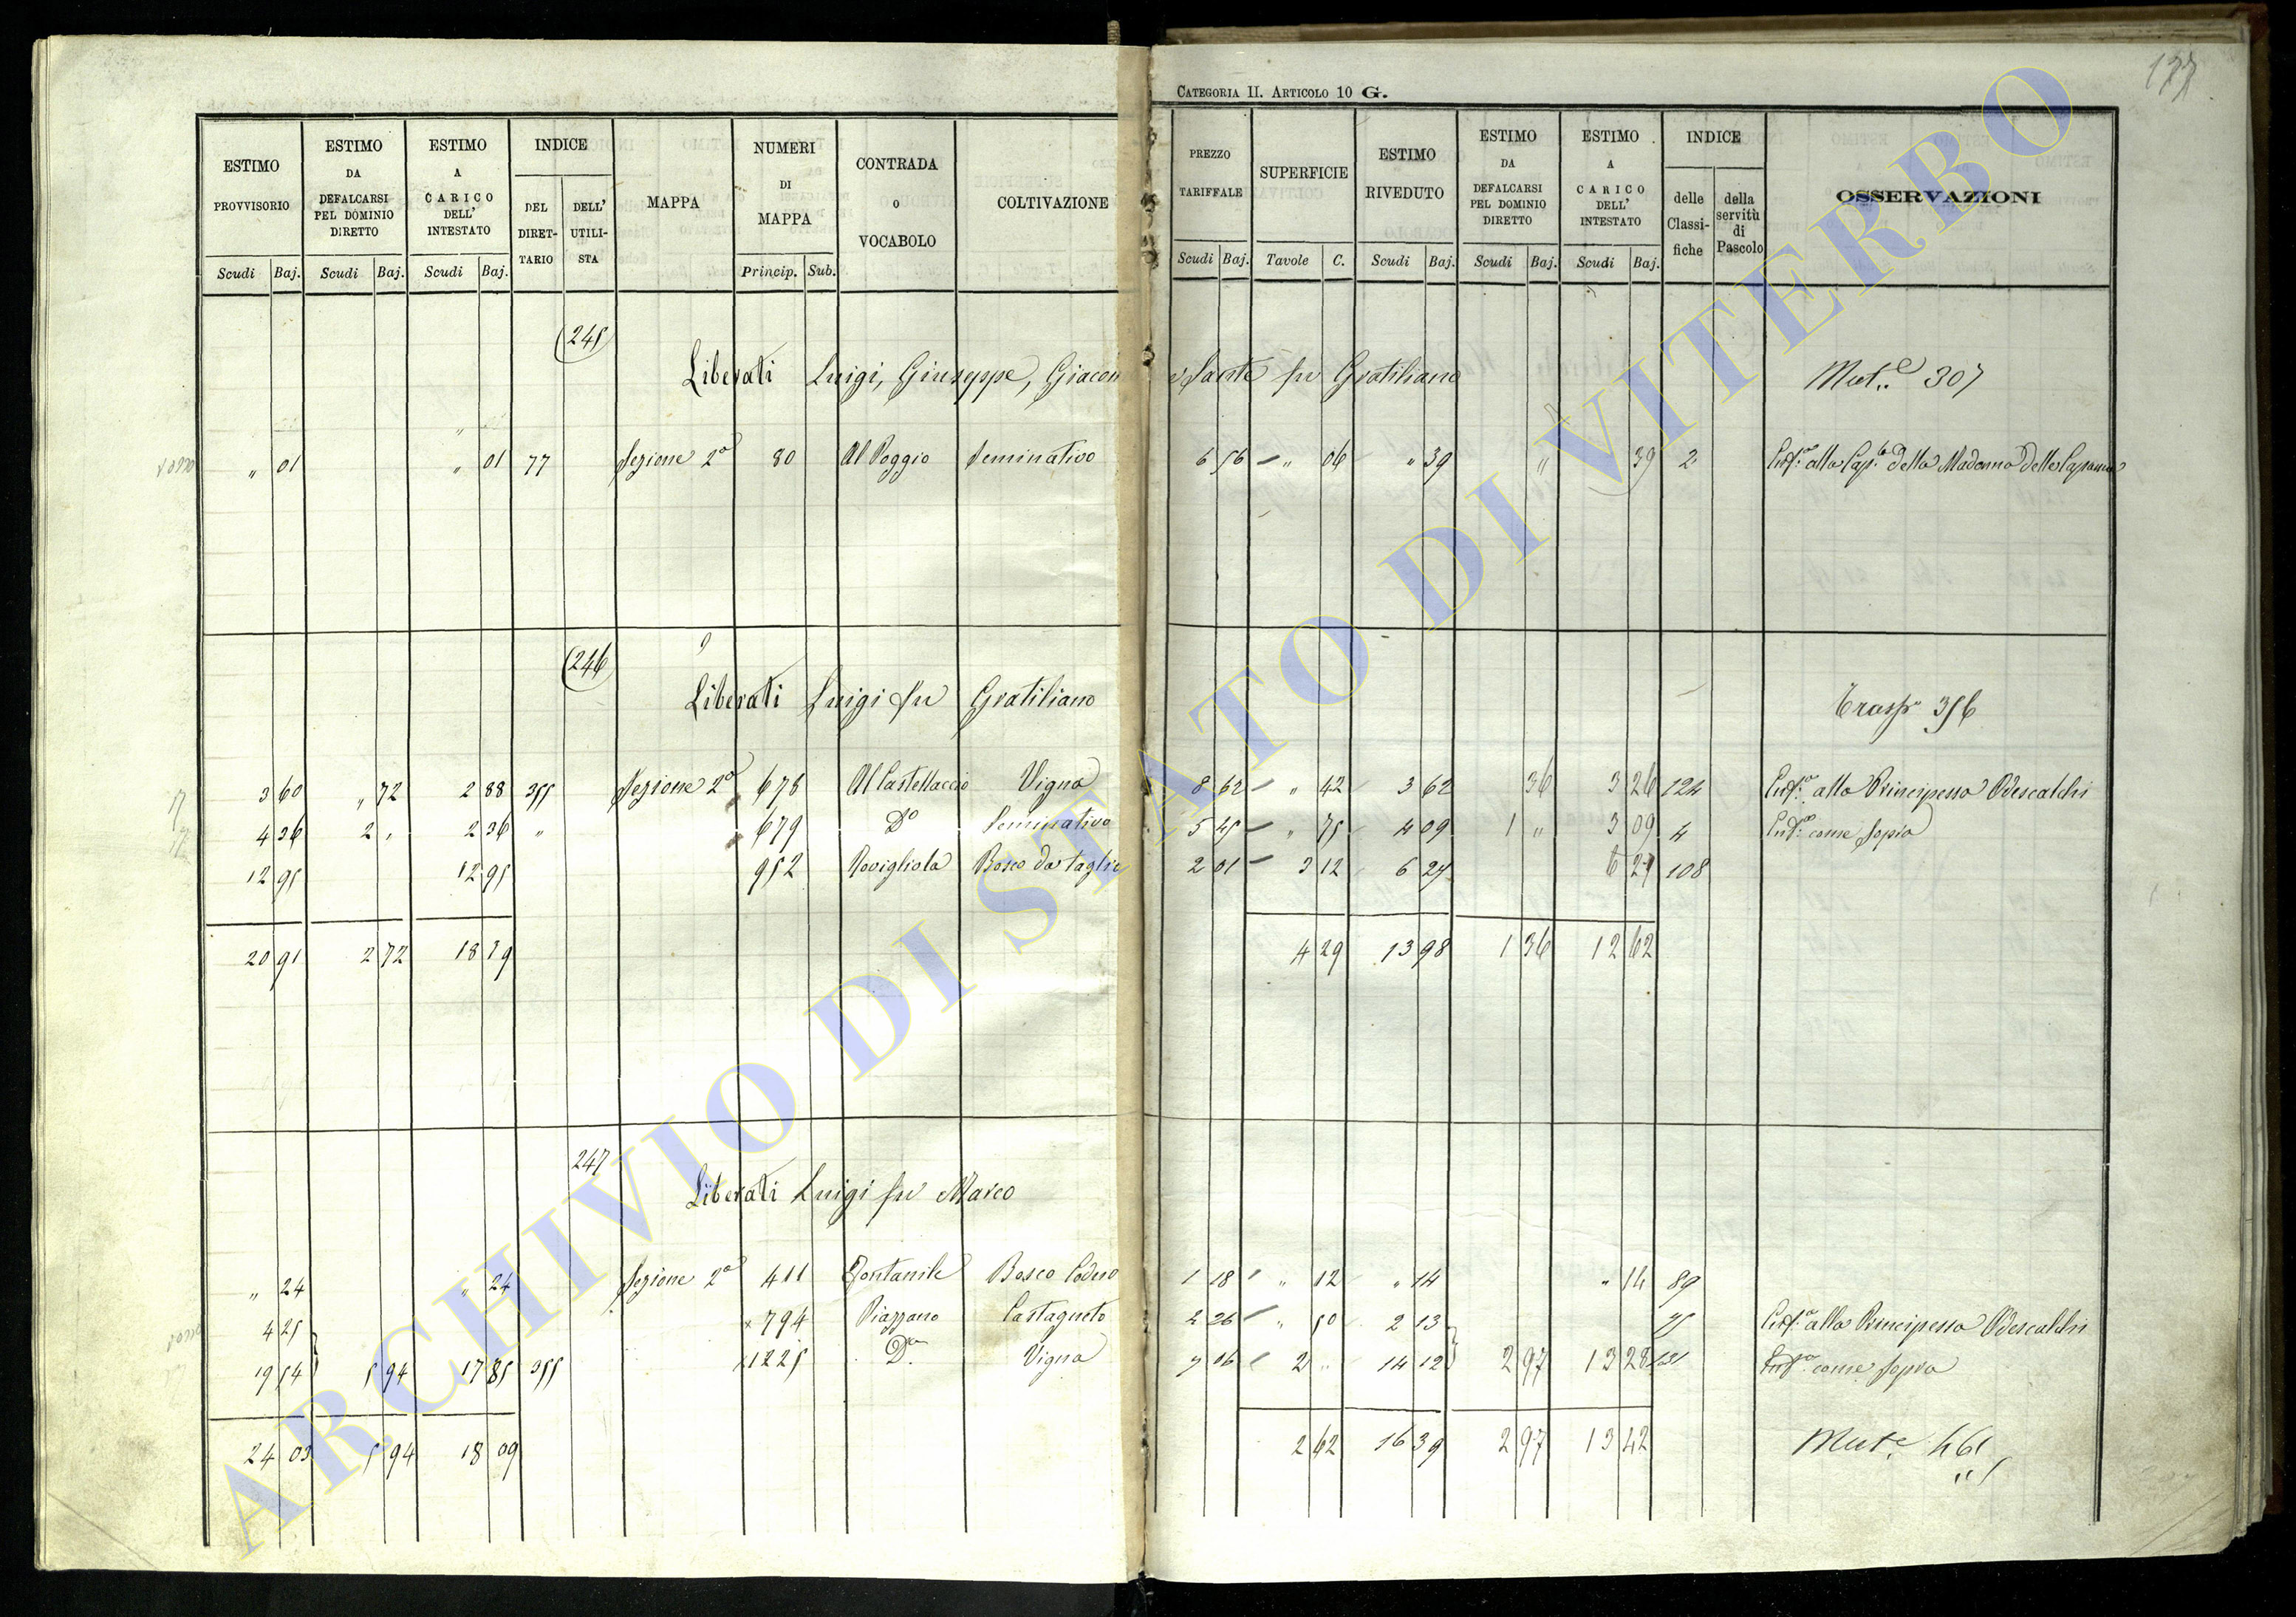 CATEGORIA II. ARTICOLO 10 G.
177
ESTIMO PROVVISORIO | ESTIMO DA DEFALCARSI PEL DOMINIO DIRETTO | ESTIMO A CARICO DELL' INTESTATO | INDICE DEL DIRETTARIO | DELL' UTILISTA | MAPPA | NUMERI DI MAPPA | CONTRADA O VOCABOLO | COLTIVAZIONE | PREZZO TARIFFALE | SUPERFICIE | ESTIMO RIVEDUTO | ESTIMO DA DEFALCARSI PEL DOMINIO DIRETTO | ESTIMO A CARICO DELL' INTESTATO | INDICE delle Classifiche | della servitù di Pascolo | OSSERVAZIONI
Scudi Baj. | Scudi Baj. | Scudi Baj. | Princip. Sub. | Scudi Baj. | Tavole C. | Scudi Baj. | Scudi Baj. | Scudi Baj.
245
Liberati Luigi, Giuseppe, Giacom e Sante fu Gratiliano Mut.e 307
" 01 " 01 77 Sezione 2a 80 Al Poggio Seminativo 6 56 " 06 " 39 " 39 2 Enf.a alla Cap. della Madonna delle
246
Liberati Luigi fu Gratiliano Trasp 356
3 60 " 72 2 88 355 Sezione 2a 678 Al Castellaccio Vigna 8 62 " 42 3 62 36 3 26 124 Enf.a alla Principessa Odescalchi
4 36 2 " 2 36 " 679 Do Seminativo 5 45 " 75 4 09 1 " 3 09 4 Enf.a come sopra
12 95 12 95 952 Rovigliola Bosco da taglio 2 01 3 12 6 27 6 27 108
20 91 2 72 18 19 4 29 13 98 1 36 12 62
247
Liberati Luigi fu Marco
" 24 " 24 Sezione 2a 411 Fontanile Bosco Ceduo 1 18 " 12 " 14 " 14 89
4 25 794 Piazzano Castagneto 2 26 " 50 2 13 75 Enf.a alla Principessa Odescalchi
19 54 5 94 17 85 355 1225 Do Vigna 7 06 2 " 14 12 2 97 13 28 131 Enf.a come sopra
24 03 5 94 18 09 2 62 16 39 2 97 13 42 Mut.e 461
ARCHIVIO DI STATO DI VITERBO